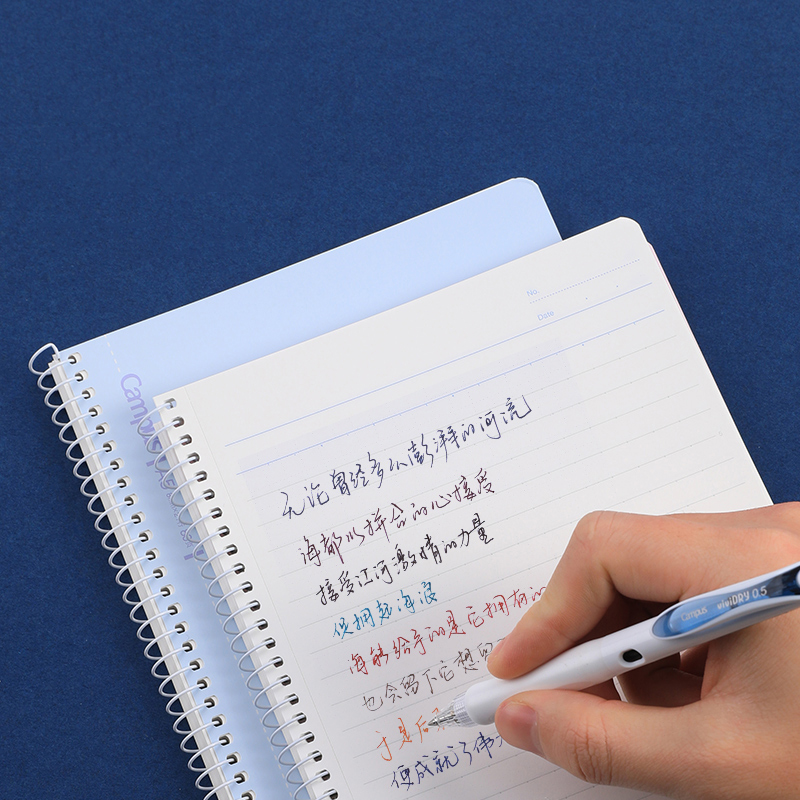 No.
Date
Campus
无论曾经多么澎湃的河流
海都以拼合的心接受
接受江河激情的力量
使拥起海浪
海能给予的是它拥有的
也会留下它想留
于是后
便成就了伟
Campus viviDRY 0.5